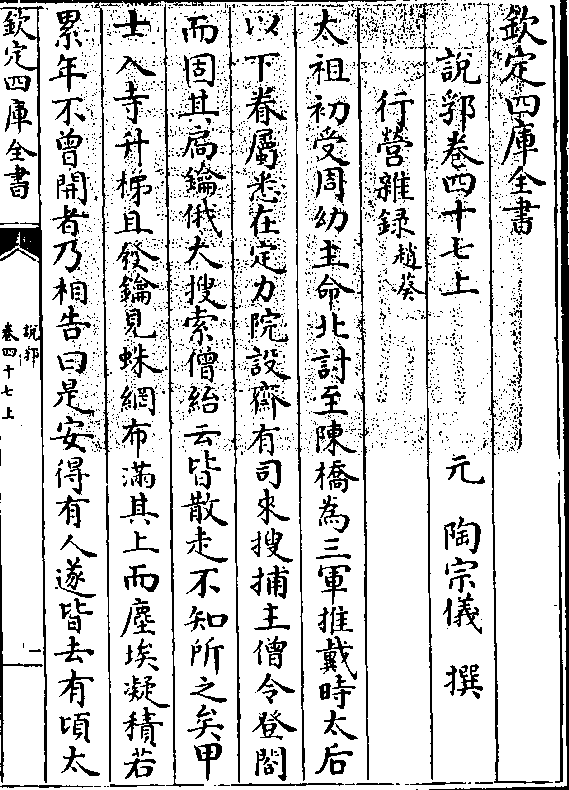 欽定四庫全書
說郛卷四十七上
元 陶宗儀 撰
行營雜錄 趙葵
太祖初受周幼主命北討至陳橋為三軍推戴時太后
以下眷屬悉在定力院設齋有司來搜捕主僧令登閣
而固其扃鑰俄大搜索僧紿云皆散走不知所之矣甲
士入寺升梯且發鑰見蛛網布滿其上而塵埃凝積若
累年不曾開者乃相告曰是安得有人遂皆去有頃太
欽定四庫全書
說郛
卷四十七上
一